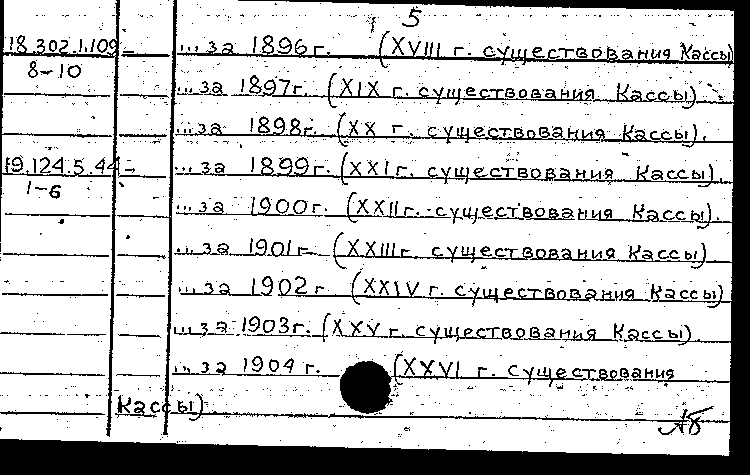 5
18.302.1.109 - ...за 1896 г. (XVIII г. существования Кассы)
8-10
...за 1897г. (XIX г. существования Кассы).
...за 1898г. (XX г. существования Кассы).
19.124.5.44 - ...за 1899г. (XXI г. существования Кассы).
1-6
...за 1900г. (XXII г. существования Кассы).
...за 1901г. (XXIII г. существования Кассы).
...за 1902г (XXIV г. существования Кассы)
...за 1903г. (XXV г. существования Кассы).
...за 1904 г. (XXVI г. существования
Кассы).